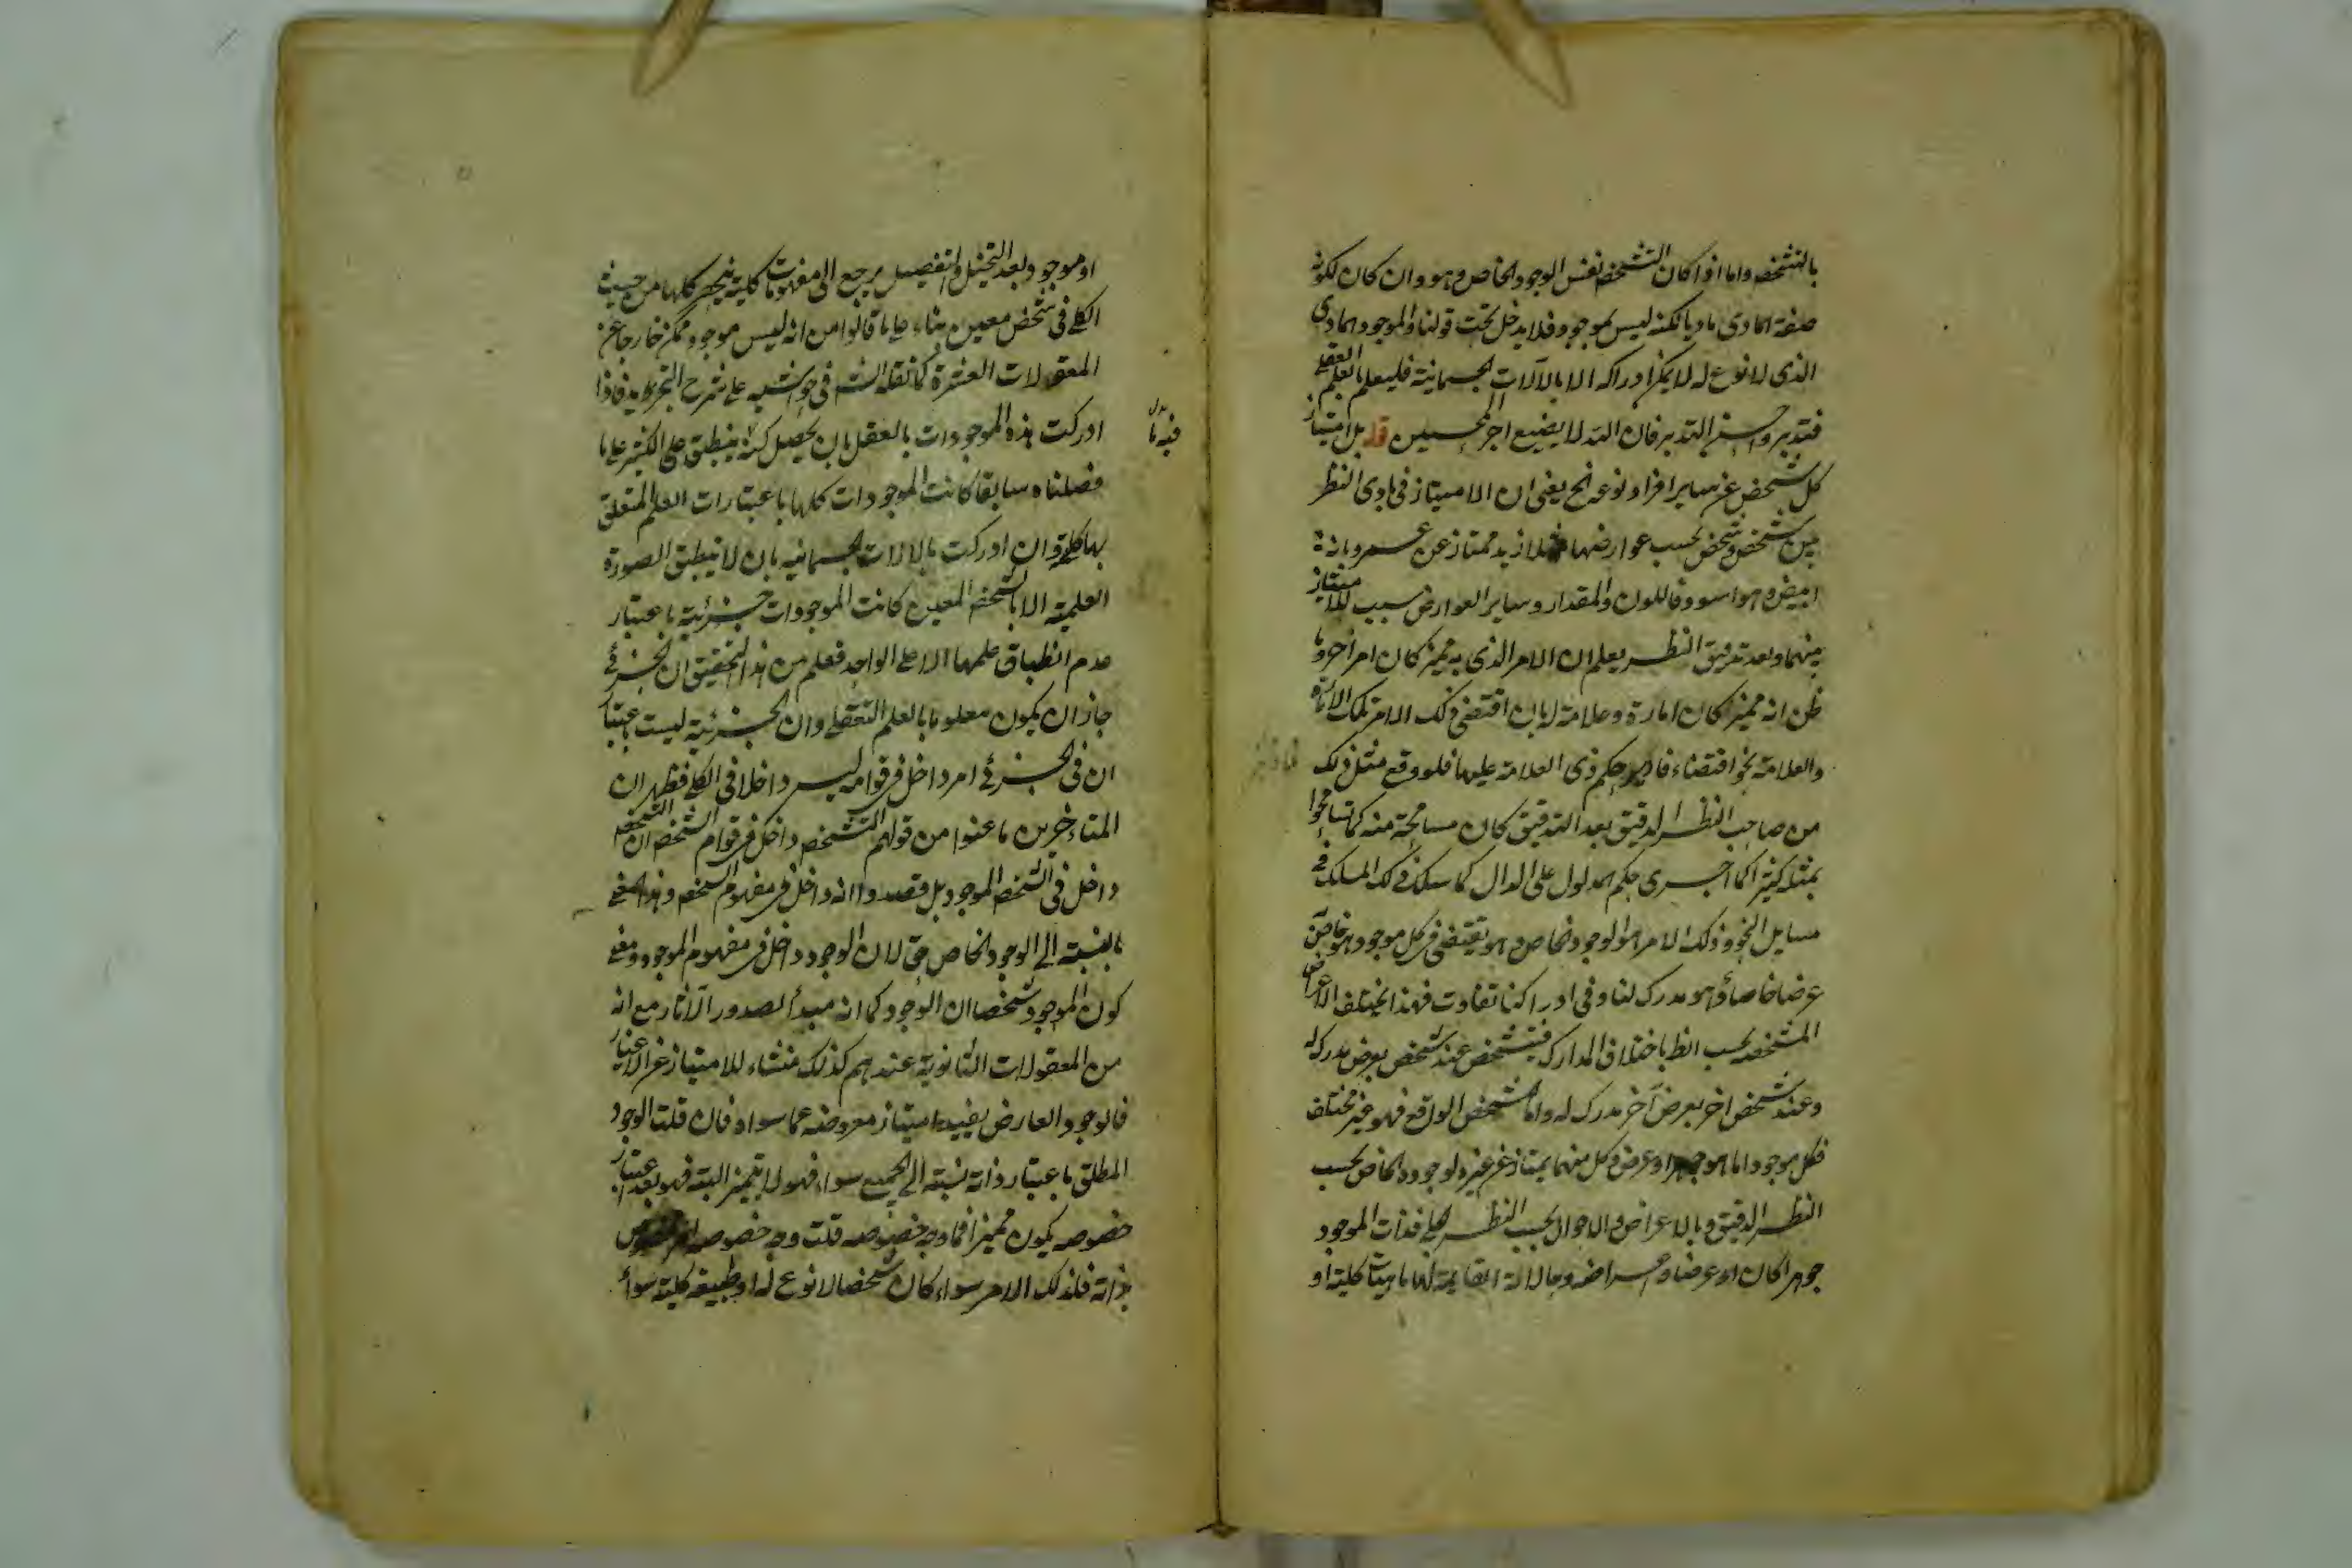 بالتشخص واما اذا كان التشخص نفس الوجود الخاص وهو وان كان لكونه
صفة المادى ماديا لكنه ليس بموجود فلا يدخل تحت قولنا والموجود المادى
الذى لا نوع له لا يمكن ادراكه الا بالآلات الجسمانية فليعلم بالعلم العقلى
فتدبر واحسن التدبر فان الله لا يضيع اجر المحسنين قوله بل امتياز
كل شخص عن ساير افراد نوعه الخ يعنى ان الامتياز فى بادى النظر
بين شخص وشخص بحسب عوارضها مثلا زيد ممتاز عن عمرو بانه
ابيض وهو اسود فاللون والمقدار وساير العوارض سبب للامتياز
بينهما وبعد تدقيق النظر يعلم ان الامر الذى به مميز كان امر اخر وما
ظن انه مميز كان امارة وعلامة له بان اقتضى ذلك الامر تلك الامارة
والعلامة نحو اقتضاء فادير حكم ذى العلامة عليها فلو وقع مثل ذلك
من صاحب النظر الدقيق بعد التدقيق كان مسامحة منه كما تسامحوا
بمثله كثيرا كما اجرى حكم المدلول على الدال كما سلك ذلك المسلك فى
مسايل النحو وذلك الامر هو الوجود الخاص وهو يقتضى فى كل موجود هو خاص
عرضا خاصا وهو مدرك لنا وفى ادراكنا تفاوت فهذا يختلف الاعراض
المشخصه بحسب النظر باختلاف المدارك فيتشخص عند شخص بعرض مدرك له
وعند شخص اخر بعرض آخر مدرك له واما التشخص الواقع فهو غير مختلف
فكل موجود اما هو جوهر او عرض وكل منهما يمتاز عن غيره لوجوده الخاص بحسب
النظر الدقيق وبالاعراض والاحوال بحسب النظر الجلى فذات الموجود
جوهرا كان او عرضا واعراضه وحالاته القايمة لها ماهيات كلية او
او موجود وبعد التحليل والتفصيل يرجع الى مفهومات كلية ينحصر كلها من حيث
الكلى فى شخص معين بناء على ما قالوا من انه ليس موجود ممكن خارجا عن
المعقولات العشرة كما نقله الش فى حواشيه على شرح التجريد فاذا
ادركت هذه الموجودات بالعقل بان يحصل كنه ينطبق على الكثير على ما
فيه ما
فصلناه سابقا كانت الموجودات كلها باعتبارات العلم المتعلق
بها كلية وان ادركت بالالات الجسمانيه بان لا ينطبق الصورة
العلمية الا بالشخص المعين كانت الموجودات جزئية باعتبار
عدم انطباق علمها الا على الواحد فعلم من هذا التحقيق ان الجزئى
جاز ان يكون معلوما بالعلم التعقلى وان الجزئية ليست باعتبار
ان فى الجزئى امر داخل فى قوامه ليس داخلا فى الكلى فظهر ان
المتاخرين ما عنوا من قولهم التشخص داخل فى قوام الشخص ان التشخص
داخل فى الشخص الموجود بل قصدوا انه داخل فى مفهوم الشخص وهذا المعنى
بالنسبة الى الوجود الخاص حق لان الوجود داخل فى مفهوم الموجود ومعنى
كون الموجود شخصا ان الوجود كما انه مبدأ لصدور الآثار مع انه
من المعقولات الثانوية عندهم كذلك منشاء للامتياز عن الاغيار
فالوجود العارض يفيد امتياز معروضه عما سواه فان قلت الوجود
المطلق باعتبار ذاته نسبته الى الجميع سواء فهو لا يتميز البتة فهو بعد اعتبار
خصوصه يكون مميزا فما وجه خصوصه قلت وجه خصوصه امر مخصوص
بذاته فلذلك الامر سواء كان شخصا لا نوع له او طبيعة كلية سواء